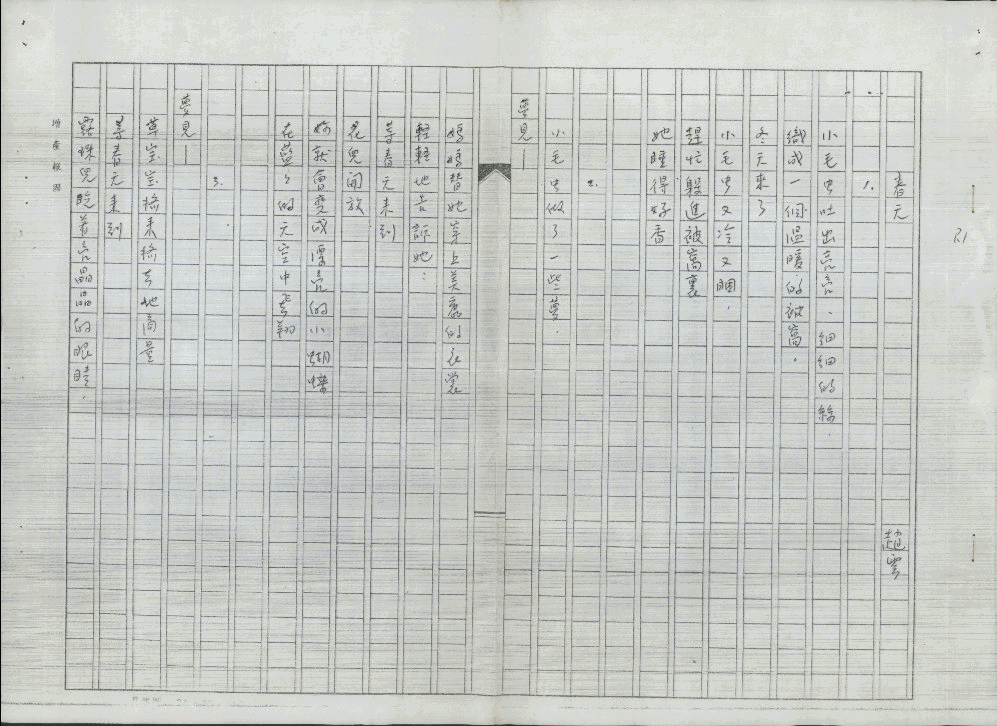 春天
趙雲
1.
小毛虫吐出亮亮、細細的絲.
織成一個溫暖的被窩.
冬天來了
小毛虫又冷又睏.
趕忙躲進被窩裏
她睡得好香
2.
小毛虫做了一些夢.
夢見—
媽媽替她穿上美麗的衣裳
輕輕地告訴她：
等春天來到
花兒開放
妳就會變成漂亮的小蝴蝶
在藍色的天空中飛翔
3.
夢見—
草宝宝將來將去地商量
等春天來到
露珠兒眨着亮晶晶的眼睛.
增產報國
21